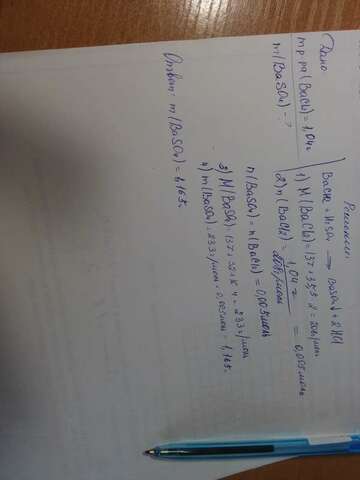 Дано:
m р-ра (BaCl2) = 1,04г
m (BaSO4) - ?
Решение:
BaCl2 + H2SO4 → BaSO4↓ + 2HCl
1) M (BaCl2) = 137 + 35,5 · 2 = 208г/моль
2) n (BaCl2) = 1,04г / 208г/моль = 0,005моль
n (BaSO4) = n (BaCl2) = 0,005моль
3) M (BaSO4) = 137 + 32 + 16 · 4 = 233г/моль
4) m (BaSO4) = 233г/моль · 0,005моль = 1,165г.
Ответ: m (BaSO4) = 1,165г.